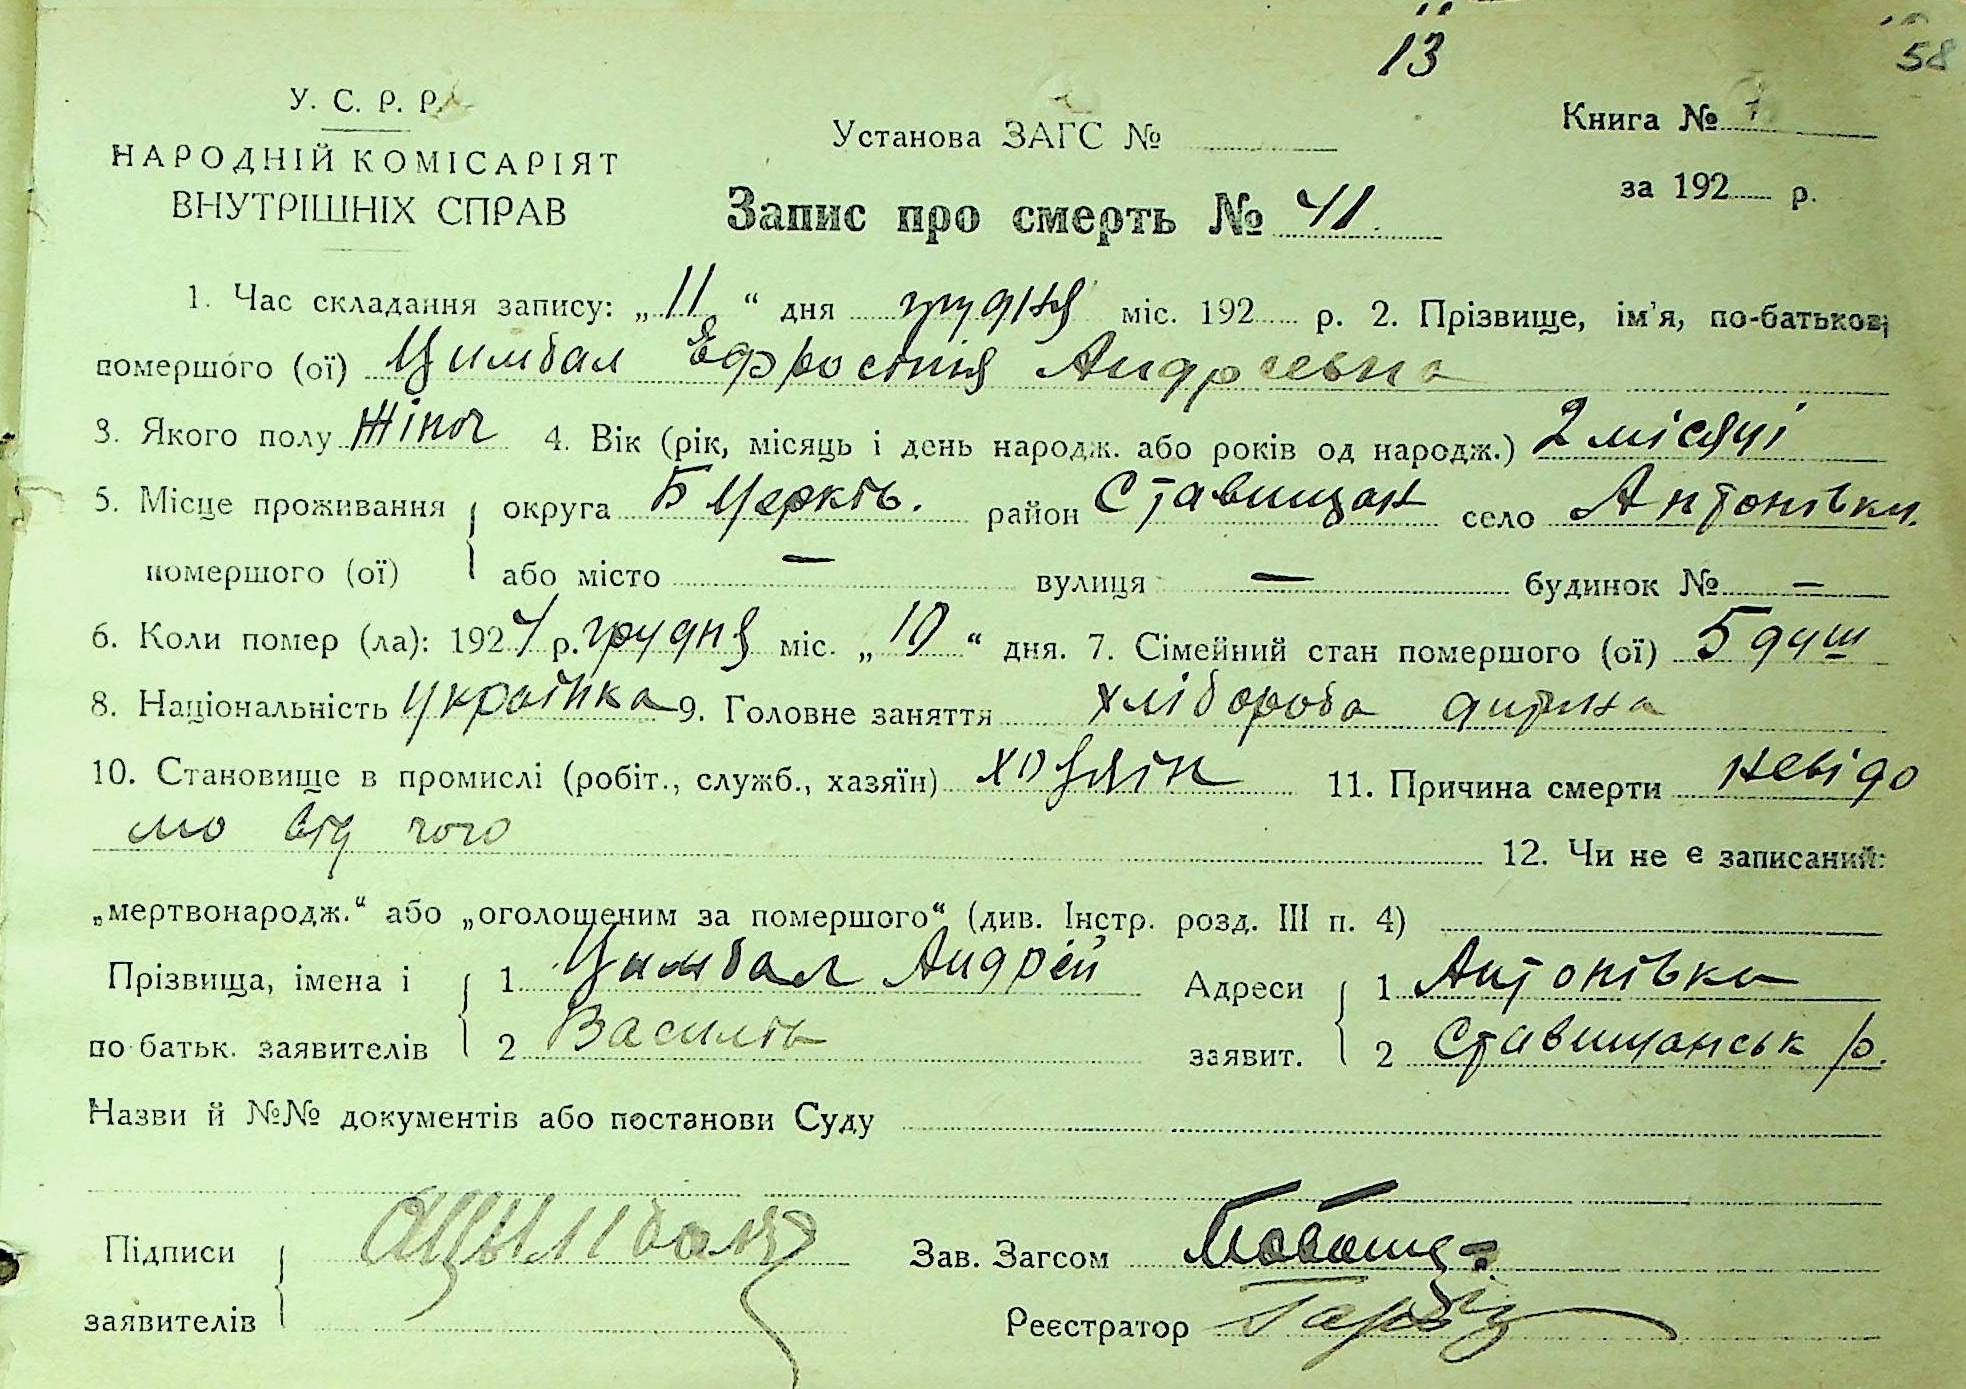 13
58
У. С. Р. Р.
НАРОДНІЙ КОМІСАРІЯТ
ВНУТРІШНІХ СПРАВ
Установа ЗАГС №
Книга № 7
за 192 р.
Запис про смерть № 41.
1. Час складання запису: „ 11 “ дня грудня міс. 192 р. 2. Прізвище, ім'я, по-батькові
помершого (ої) Цимбал Ефросинія Андреевна
3. Якого полу Жіноч 4. Вік (рік, місяць і день народж. або років од народж.) 2 місяці
5. Місце проживання округа Б Церків. район Ставищан село Антонівки.
помершого (ої) або місто — вулиця — будинок № —
6. Коли помер (ла): 1924 р. грудня міс. „ 10 “ дня. 7. Сімейний стан помершого (ої) 5 душ
8. Національність українка 9. Головне заняття хлібороба дитина
10. Становище в промислі (робіт., служб., хазяїн) хозяїн 11. Причина смерти невідо
мо від чого 12. Чи не є записаний:
„мертвонародж.“ або „оголошеним за помершого“ (див. Інстр. розд. III п. 4)
Прізвища, імена і 1 Цимбал Андрій Адреси 1 Антонівка
по батьк. заявителів 2 Василів заявит. 2 Ставищанськ р.
Назви й №№ документів або постанови Суду
Підписи АЦымбал Зав. Загсом
заявителів Реєстратор